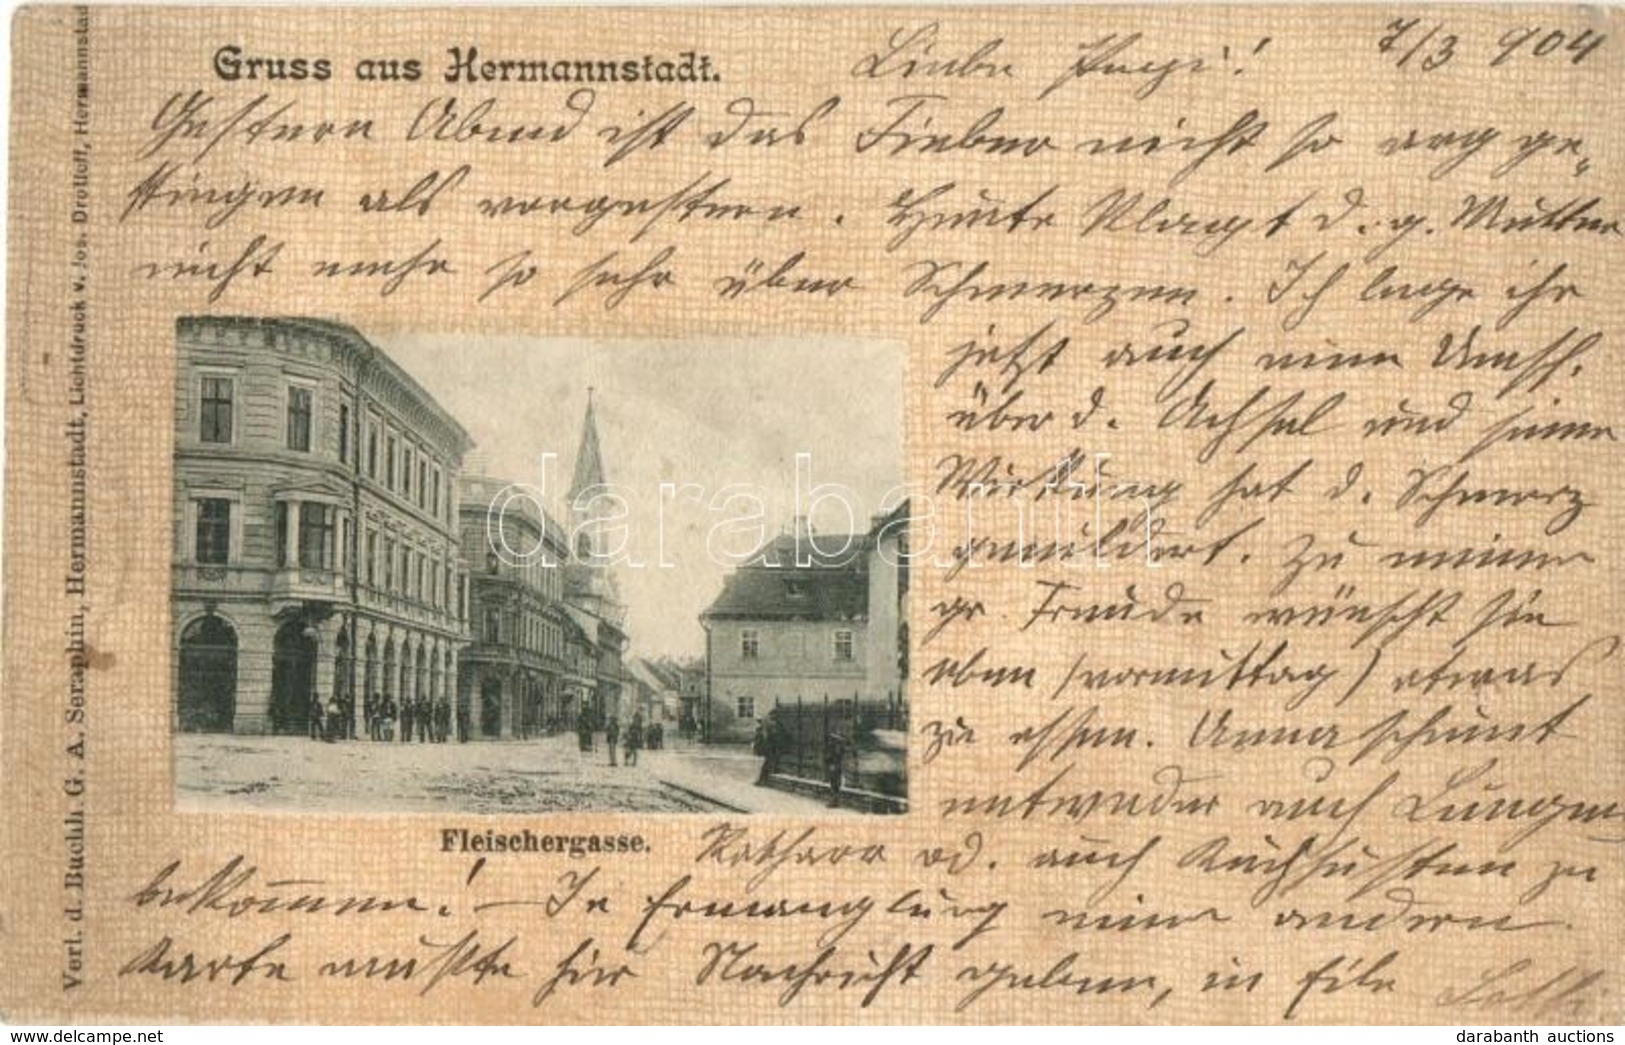 Gruss aus Hermannstadt.
Liebe 7/3 904
Gestern Abend ist das Fieber nicht so arg ge-
stiegen als vorgestern. Heute klagt d. g. Mutter
nicht mehr so sehr über Schmerzen. Ich lege ihr
jetzt auch einen Umsch.
über d. Achsel und seine
Wirkung hat d. Schmerz
gemildert. Zu meiner
gr. Freude wünscht sie
eben (vormittag) etwas
zu essen. Anna scheint
entweder auch Lungen
Fleischergasse.
Katharr od. auch Keuchhusten zu
bekommen! – In Ermanglung einer andern
Karte musste hier Nachricht geben, in Eile
Verl. d. Buchh. G. A. Seraphin, Hermannstadt, Lichtdruck v. Jos. Drotleff, Hermannstad
darabanth
darabanth auctions